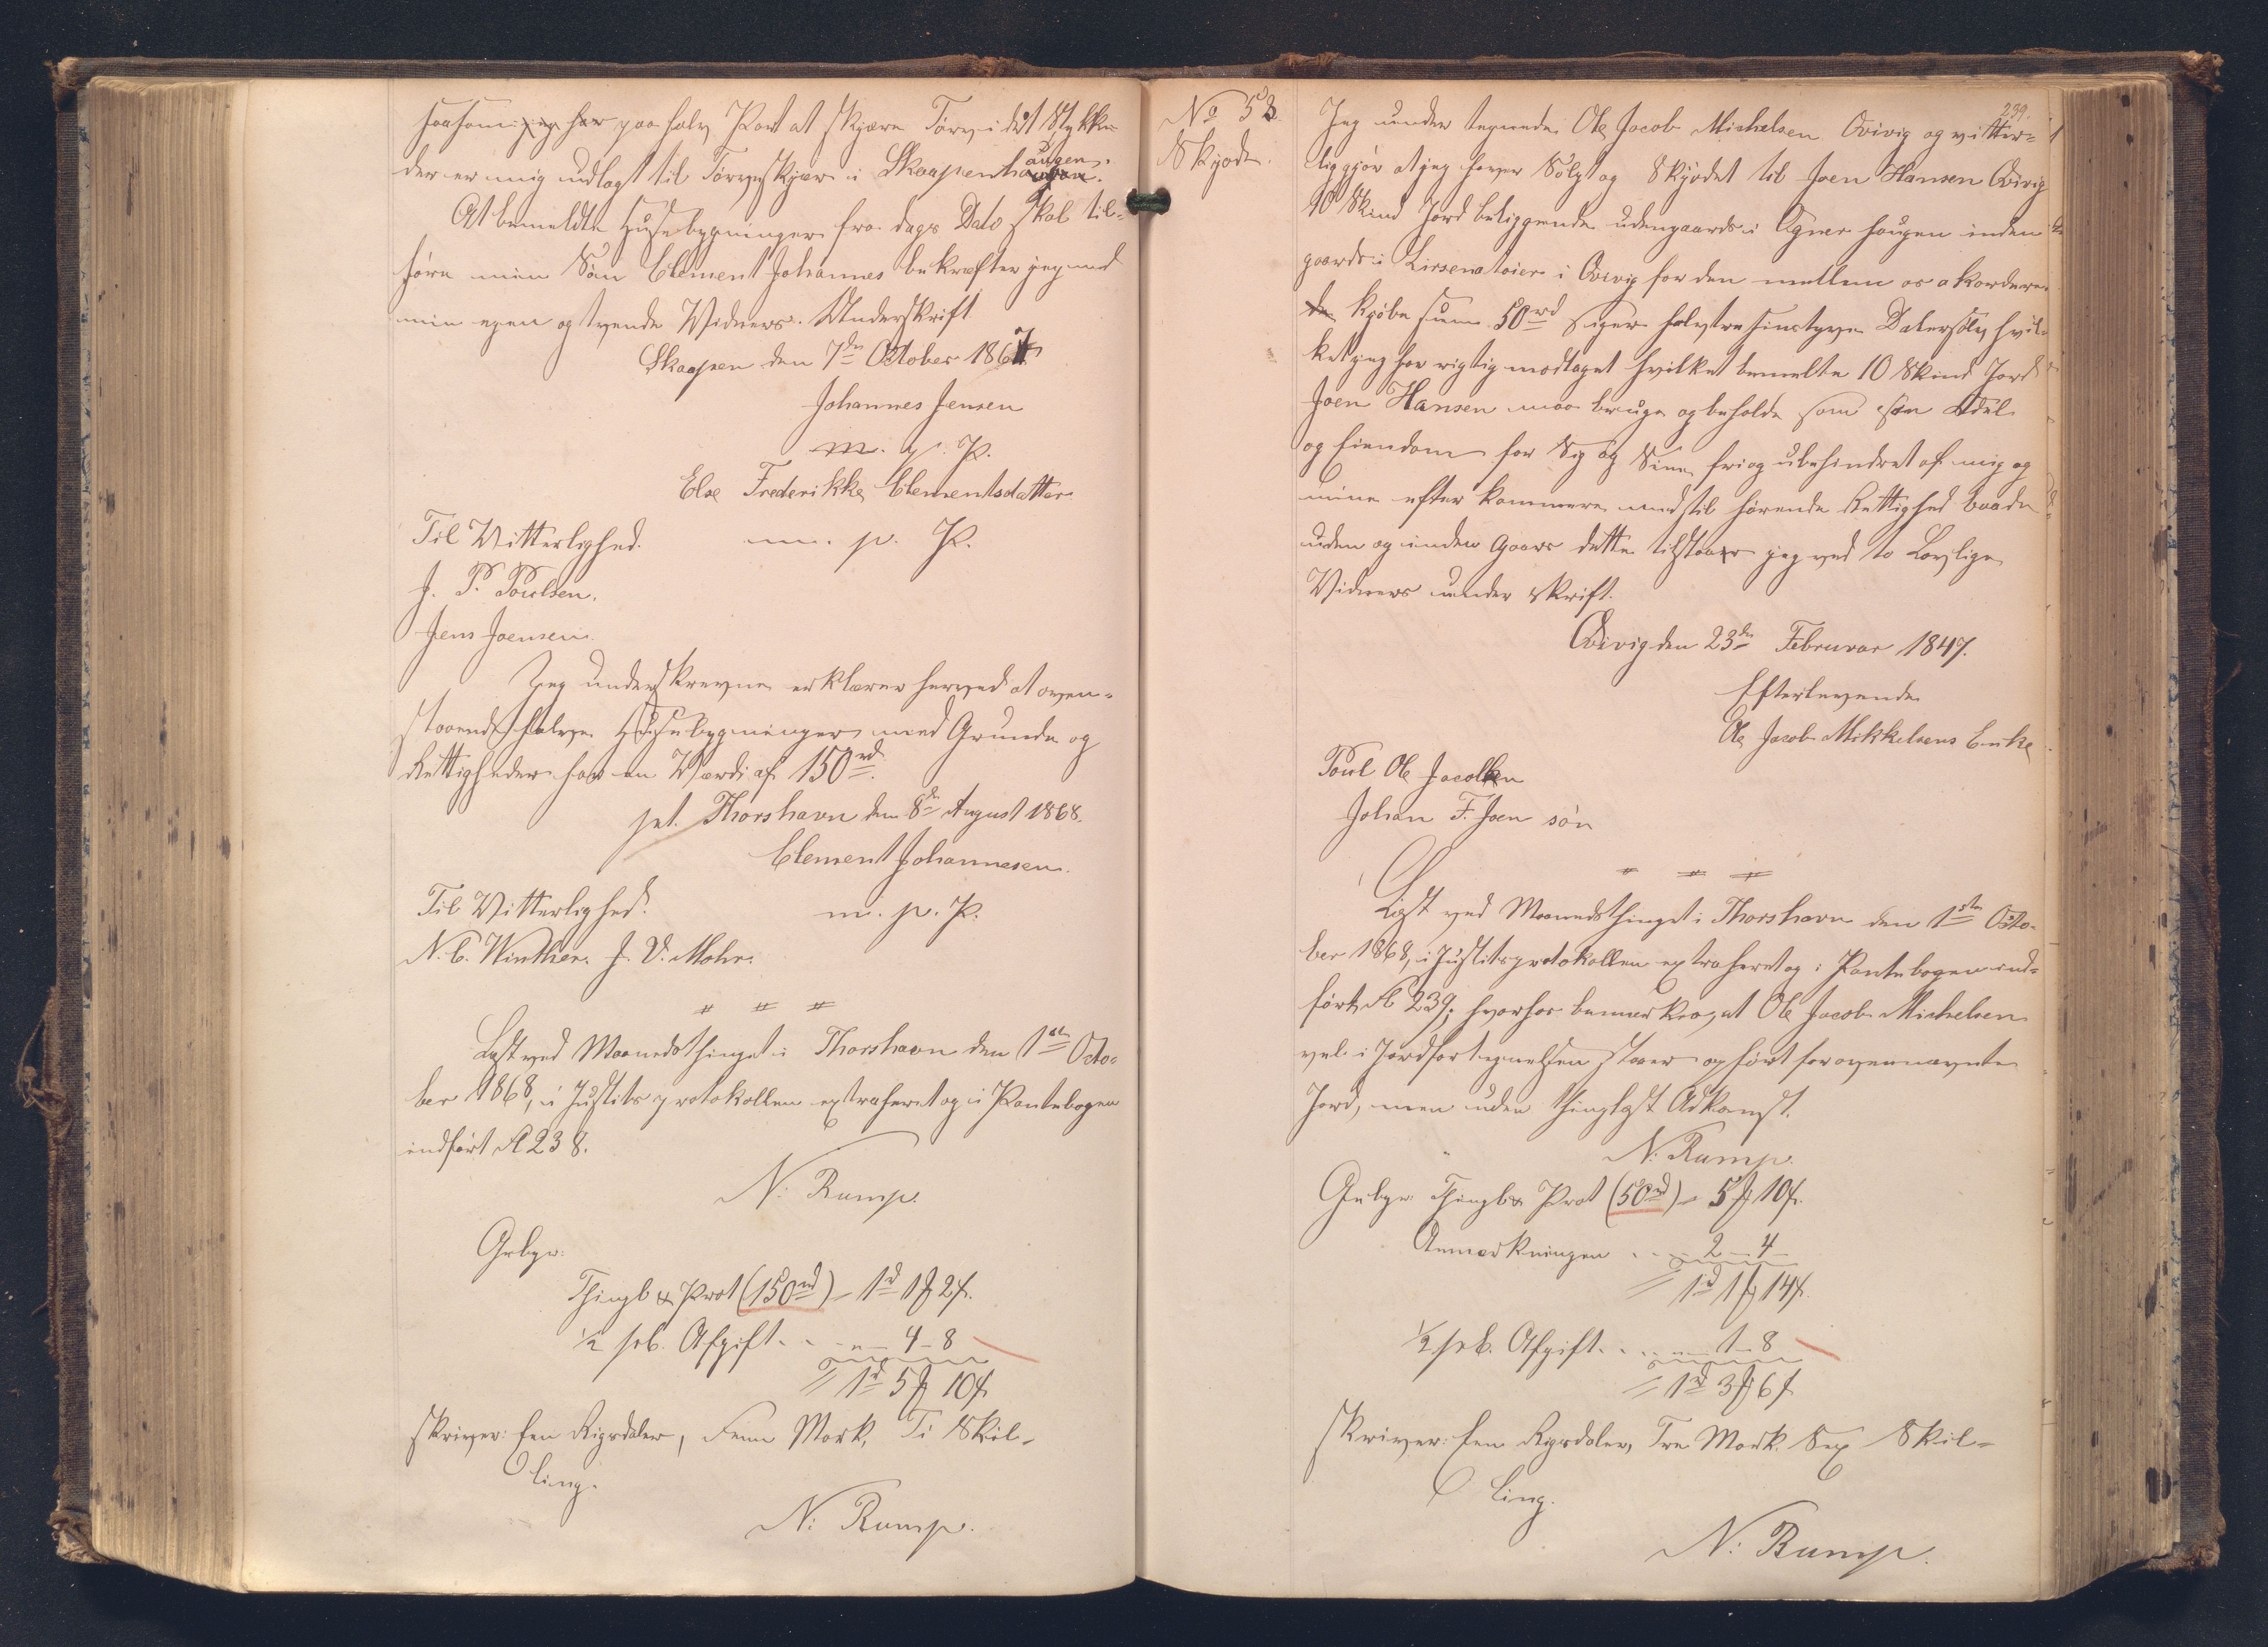 saasom jeg har paa halv Part at skjære Tørv i det Stykke
der er mig udlagt til Tørveskjær i Skaapenhaugen.
At bemeldte Husebygninger fra dags Dato skal til-
høre min Søn Clement Johannes bekræfter jeg med
min egen og tvende Vidners Underskrift
Skaapen den 7de October 1867
Johannes Jensen
m. p. P.
Else Frederikke Clementsdatter
Til Vitterlighed. m. p. P.
J. P. Poulsen.
Jens Joensen.
Jeg underskrevne erklærer herved at oven-
staaende halve Husebygninger med Grunde og
Rettigheder har en Værdi af 150rd.
pt. Thorshavn den 8de August 1868.
Clement Johannesen.
Til Vitterlighed. m. p. P.
N. C. Winther. J. D. Mohr.
Læst ved Maanedsthinget i Thorshavn den 1ste Octo-
ber 1868, i Justitsprotokollen extraheret og i Pantebogen
indført A 238.
N: Rump.
Gebyr:
Thingl & Prot (150rd) = 1rd 1 2
1/2 pCt. Afgift . . „ — 4 — 8
= 1rd 5 10
skriver: Een Rigsdaler, Fem Mark, Ti Skil-
ling.
N: Rump.
239.
No 53.
Skjøde.
Jeg under tegnede Ole Jacob Michelsen Qvivig og vitter-
liggjør at jeg haver Solgt og Skjødet til Joen Hansen Qvivig
10 Skind Jord beliggende udengaards i haugen inden
gaards i i Qvivig for den mellem os akordere-
de kjøbe sum 50rd siger halvtresinstyve Daler sølv hvil-
ket jeg har rigtig modtaget hvilket bemelte 10 Skind Jord
Joen Hansen maa bruge og beholde som sin Odel
og Eiendom for Sig og Sine fri og ubehindret af mig og
mine efter kommere med til hørende Rettighed baade
uden og inden Gaars dette tilstaaer jeg ved to Lovlige
Vidners under skrift.
Qvivig den 23de Februar 1847.
Efterlevende
Ole Jacob Mikkelsens Enke
Poul Ole Jacobsen
Johan F. Joen søn
Læst ved Maanedsthinget i Thorshavn den 1ste Octo-
ber 1868, i Justitsprotokollen extraheret og i Pantebogen ind-
ført A 239; hvorhos bemærkes, at Ole Jacob Michelsen
vel i Jordfortegnelsen staaer opført for ovennævnte
Jord, men uden thinglæst Adkomst.
N: Rump.
Gebyr Thingl & Prot (50rd) = 5 10
Anmærkningen . . 2 — 4 —
= 1rd 1 14
1/2 pCt. Afgift . . . „ — 1 — 8
= 1rd 3 6
skriver: Een Rigsdaler, Tre Mark Sex Skil-
ling.
N: Rump.